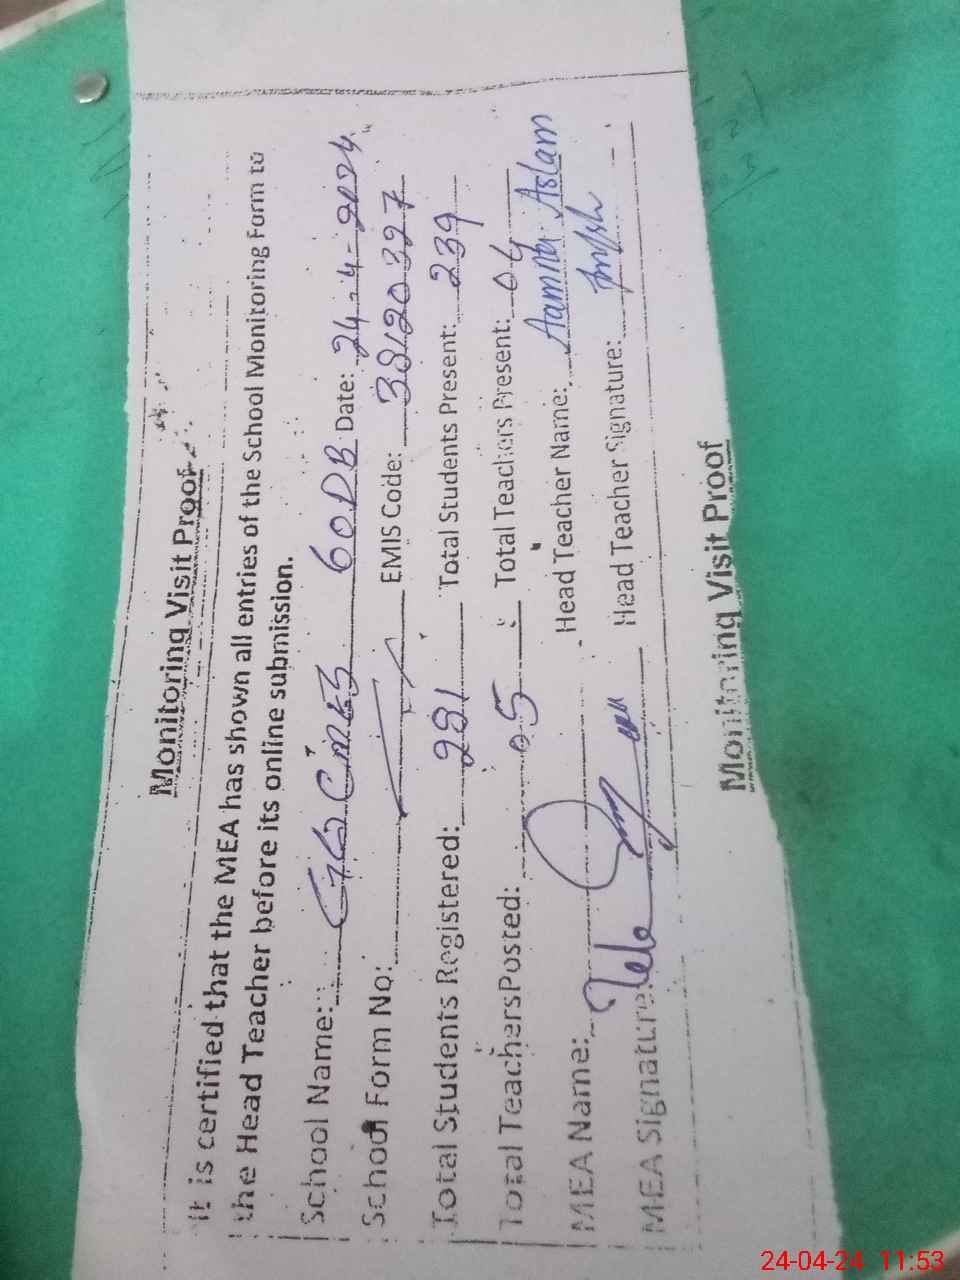 Monitoring Visit Proof
It is certified that the MEA has shown all entries of the School Monitoring Form to
the Head Teacher before its online submission.
School Name: 60 DB Date: 24-4-2024
School Form No: EMIS Code: 38120327
Total Students Registered: 281 Total Students Present: 239
Total TeachersPosted: 05 Total Teachers Present: 04
MEA Name: Head Teacher Name: Aamna Aslam
MEA Signature: Head Teacher Signature:
Monitoring Visit Proof
24-04-24 11:53